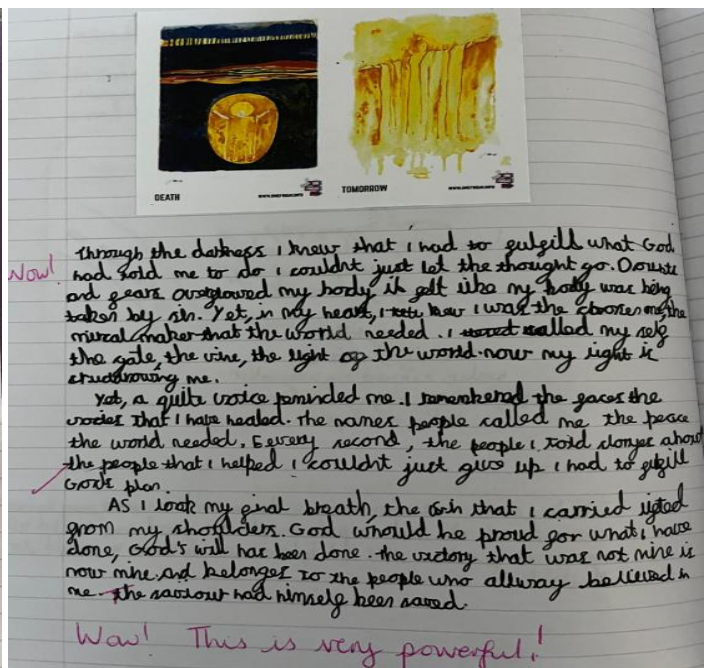 DEATH
TOMORROW
Through the darkness i knew that i had to fulfill what God
Wow! had told me to do i couldnt just let the thought go. Doubts
and fears overflowed my body it felt like my body was being
taken by sin. Yet, in my heart, i knew i was the chosen one, the
mircal maker that the world needed. i called my self
the gate, the vine, the light of the world. now my light is
me.
Yet, a quite voice reminded me. I remembered the faces the
that I have healed. the names people called me the peace
the world needed. Every second, the people i told about
the people that i helped i couldnt just give up i had to fulfill
God's plan.
As I took my final breath, the sin that i carried lifted
from my shoulders. God whould be proud for what i have
done, God's will has been done. the victory that was not mine is
now mine. And belonges to the people who allway believed in
me. the saviour had himself been saved.
Wow! This is very powerful!